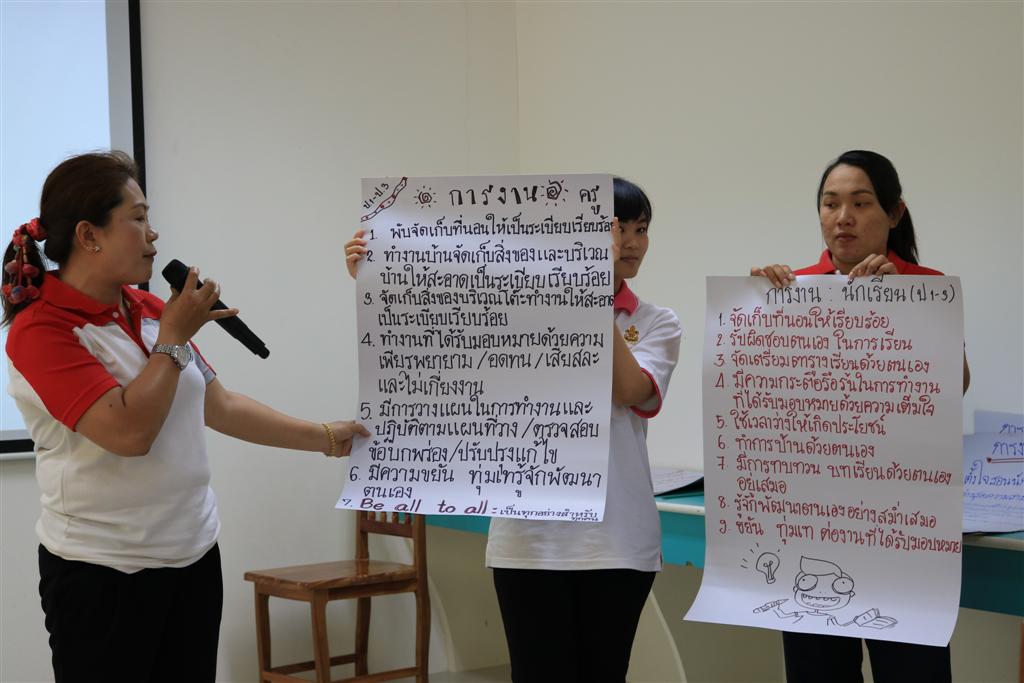 ป.1-ป.3
การงาน ครู
1. พับจัดเก็บที่นอนให้เป็นระเบียบเรียบร้อย
2. ทำงานบ้านจัดเก็บสิ่งของและบริเวณ
บ้านให้สะอาดเป็นระเบียบเรียบร้อย
3. จัดเก็บสิ่งของบริเวณโต๊ะทำงานให้สะอาด
เป็นระเบียบเรียบร้อย
4. ทำงานที่ได้รับมอบหมายด้วยความ
เพียรพยายาม/อดทน/เสียสละ
และไม่เกี่ยงงาน
5. มีการวางแผนในการทำงานและ
ปฏิบัติตามแผนที่วาง/ตรวจสอบ
ข้อบกพร่อง/ปรับปรุงแก้ไข
6. มีความขยัน ทุ่มเทรู้จักพัฒนา
ตนเอง
7. Be all to all : เป็นทุกอย่างสำหรับ
ทุกคน
การงาน : นักเรียน (ป 1-3)
1. จัดเก็บที่นอนให้เรียบร้อย
2. รับผิดชอบตนเอง ในการเรียน
3. จัดเตรียมตารางเรียนด้วยตนเอง
4. มีความกระตือรือร้นในการทำงาน
ที่ได้รับมอบหมายด้วยความเต็มใจ
5. ใช้เวลาว่างให้เกิดประโยชน์
6. ทำการบ้านด้วยตนเอง
7. มีการทบทวน บทเรียนด้วยตนเอง
อยู่เสมอ
8. รู้จักพัฒนาตนเองอย่างสม่ำเสมอ
9. ขยัน ทุ่มเท ต่องานที่ได้รับมอบหมาย